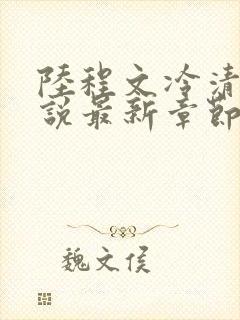 陸程文冷清
說最新章節
魏文侯